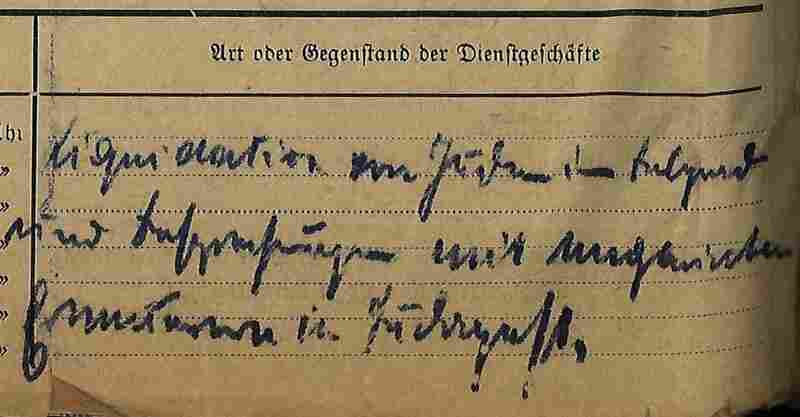 Art oder Gegenstand der Dienstgeschäfte
Liquidation von Juden in Belgrad
und Besprechungen mit ungarischen
Emissären in Budapest.